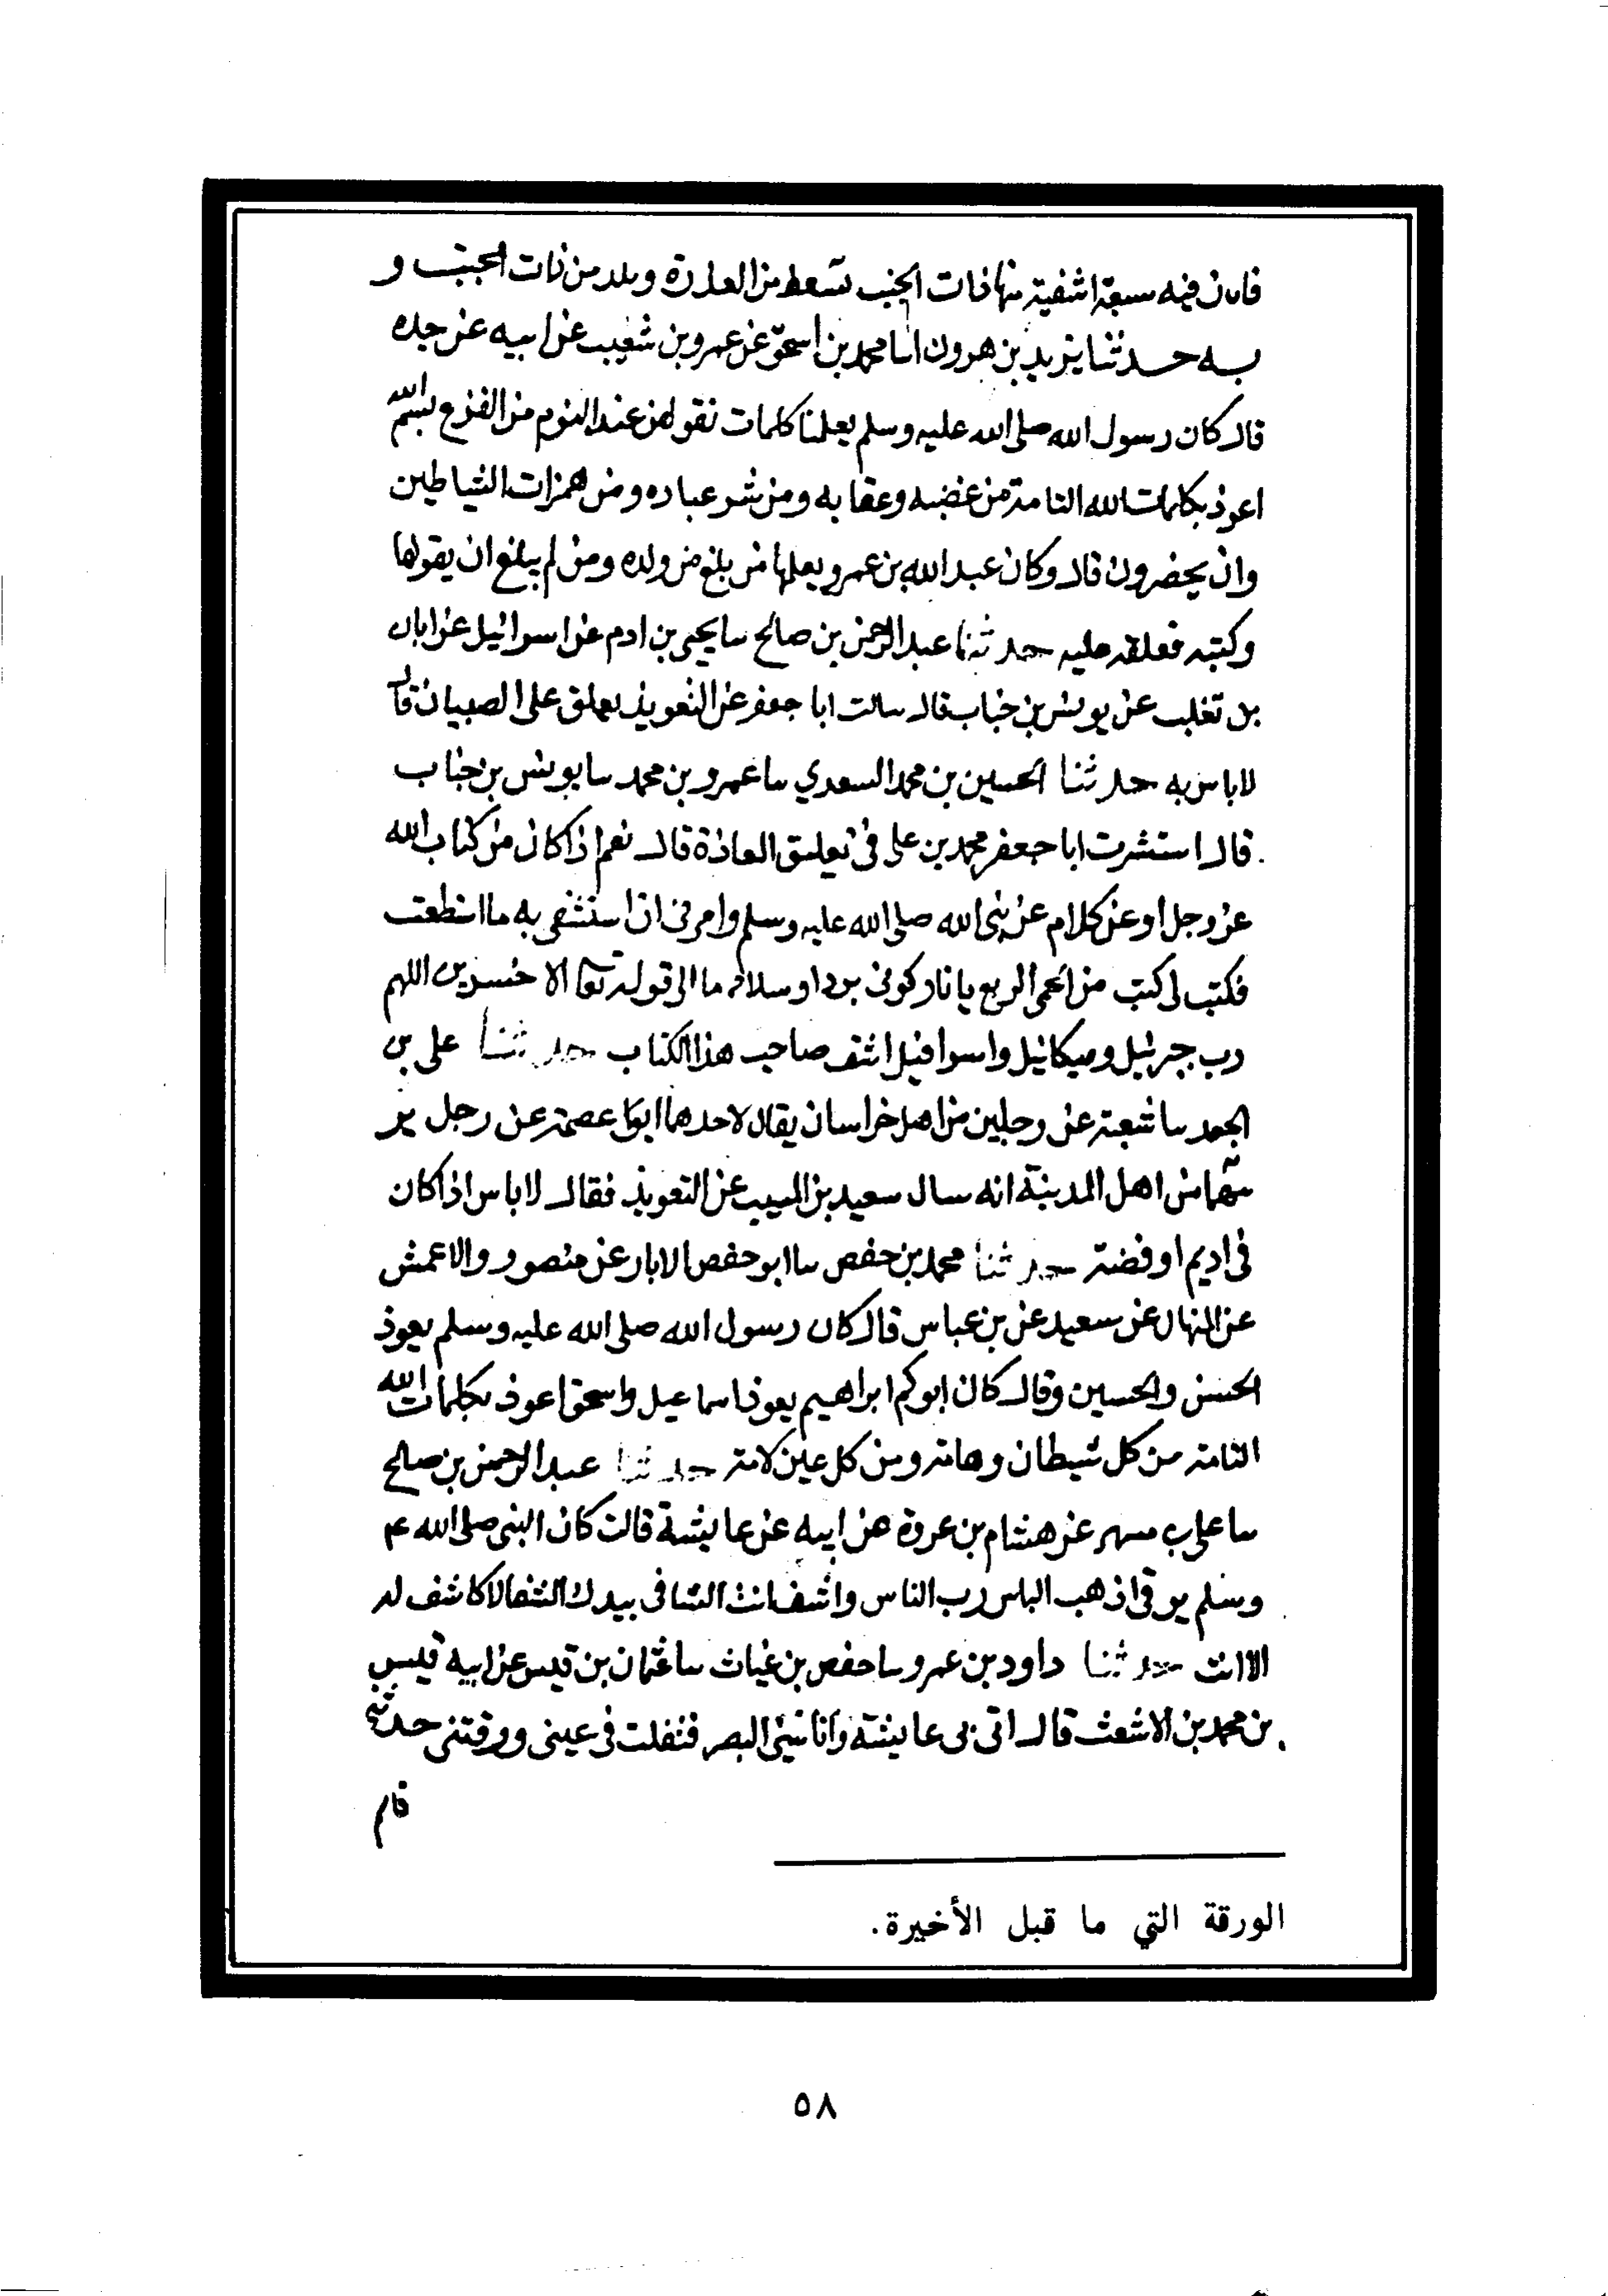 فان فيه سبعة اشفية منها ذات الجنب تسعط من العذرة ويلد من ذات الجنب و
به حدثنا يزيد بن هرون انا محمد بن اسحق عن عمرو بن شعيب عن ابيه عن جده
قال كان رسول الله صلى الله عليه وسلم يعلمنا كلمات نقولهن عند النوم من الفزع بسم الله
اعوذ بكلمات الله التامة من غضبه وعقابه ومن شر عباده ومن همزات الشياطين
وان يحضرون قال وكان عبد الله بن عمرو يعلمها من بلغ من ولده ومن لم يبلغ ان يقولها
وكتبه فعلقه عليه حدثنا عبد الرحمن بن صالح سا يحيى بن ادم عن اسرائيل عن ابان
بن تغلب عن يونس بن خباب قال سالت ابا جعفر عن التعويذ يعلق على الصبيان قال
لا باس به حدثنا الحسين بن محمد السعدي سا عمرو بن محمد سا يونس بن خباب
قال استشرت ابا جعفر محمد بن علي في تعليق العاذة قال نعم اذا كان من كتاب الله
عز وجل او عن كلام عن نبي الله صلى الله عليه وسلم وامرني ان استشفي به ما استطعت
فكتب لي كتب من الحمى الربع يا نار كوني بردا وسلاما الى قوله تعا الاخسرين اللهم
رب جبرئيل وميكائيل واسرافيل اشف صاحب هذا الكتاب حدثنا علي بن
الجعد سا شعبة عن رجلين من اهل خراسان يقال لاحدهما ابو عصمة عن رجل
من اهل المدينة انه سال سعيد بن المسيب عن التعويذ فقال لا باس اذا كان
في اديم او فضة حدثنا محمد بن حفص سا ابو حفص الابار عن منصور والاعمش
عن المنهال عن سعيد عن بن عباس قال كان رسول الله صلى الله عليه وسلم يعوذ
الحسن والحسين وقال كان ابوكم ابراهيم يعوذ اسماعيل واسحق اعوذ بكلمات الله
التامة من كل شيطان وهامة ومن كل عين لامة حدثنا عبد الرحمن بن صالح
سا علي ب مسهر عن هشام بن عروة عن ابيه عن عايشة قالت كان النبي صلى الله ع
وسلم يرقي اذهب الباس رب الناس واشف انت الشافي بيدك الشفا لا كاشف له
الا انت حدثنا داود بن عمرو سا حفص بن غياث سا عثمان بن قيس عن ابيه قيس
بن محمد بن الاشعث قال اتى بي عايشة وانا شيئ البصر فتفلت في عيني ورقتني حدثني
قام
الورقة التي ما قبل الأخيرة.
٥٨